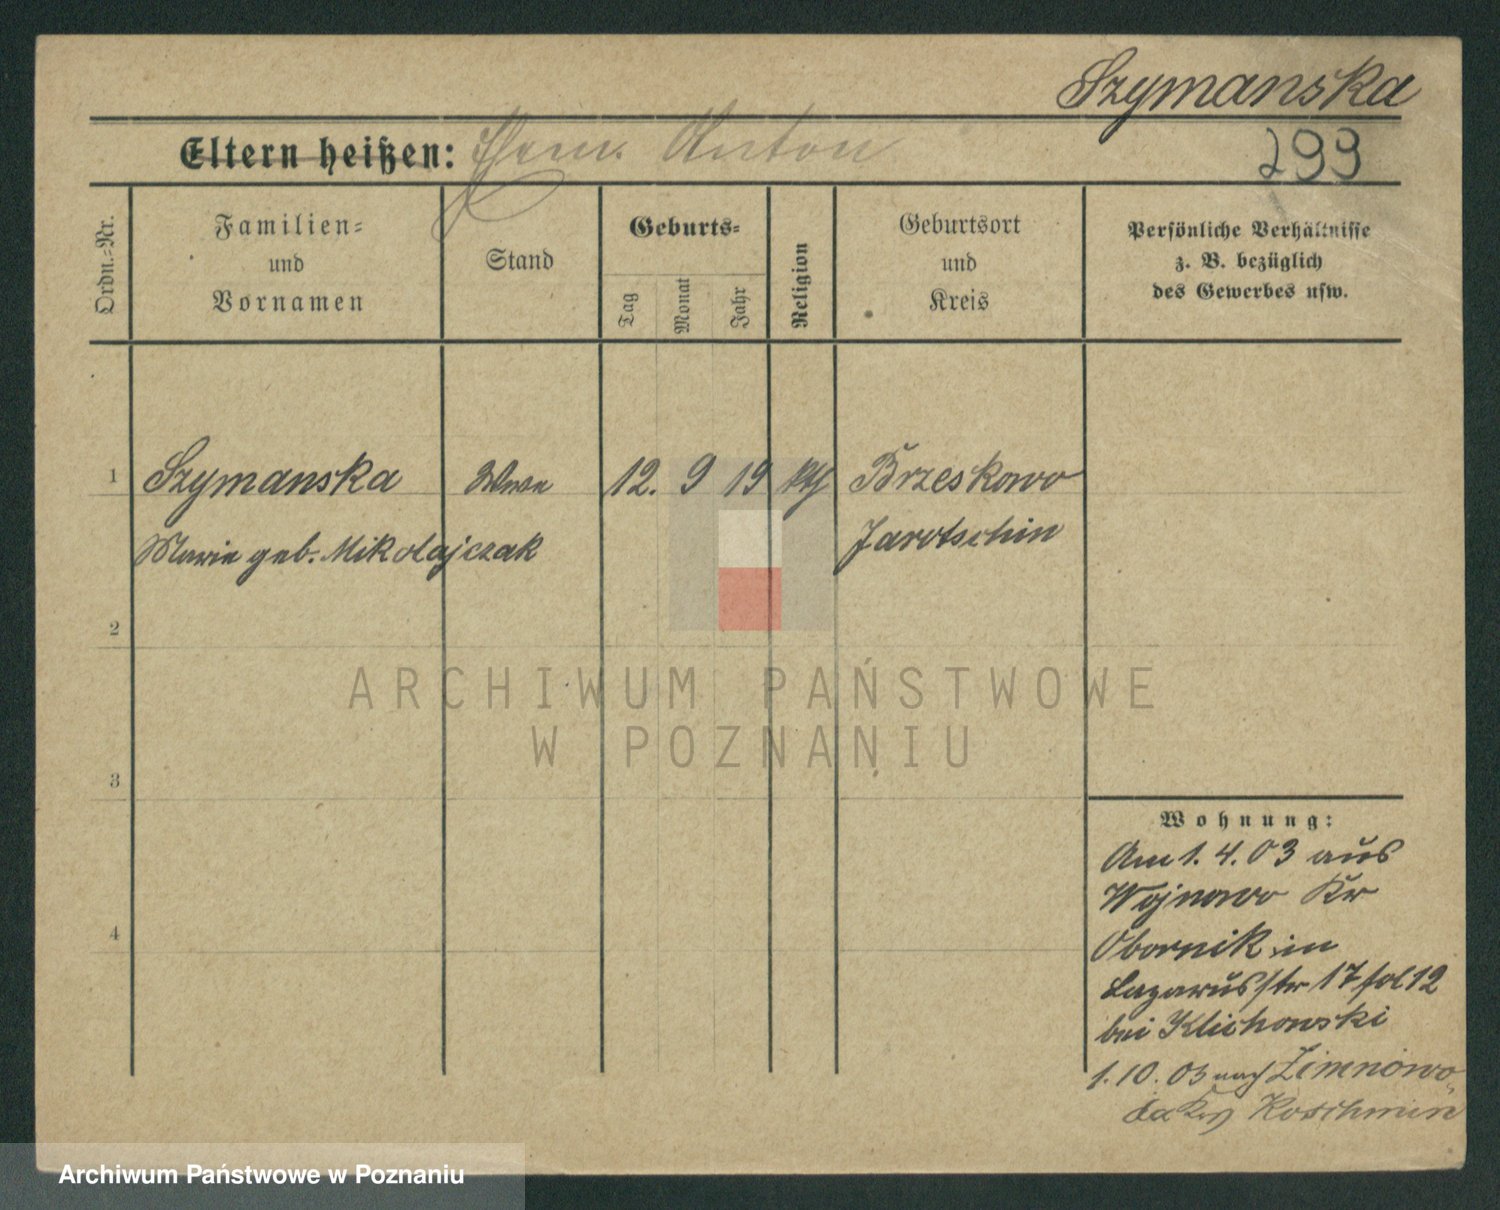 Szymanska
Eltern heißen: Anton
299
Ordn.-Nr.
Familien-
und
Vornamen
Stand
Geburts-
Tag
Monat
Jahr
Religion
Geburtsort
und
Kreis
Persönliche Verhältnisse
z. B. bezüglich
des Gewerbes usw.
1
Szymanska Wwe 12. 9 19 kth Brzeskowo
Marie geb. Mikolajczak Jarotschin
2
3
4
ARCHIWUM PAŃSTWOWE
W POZNANIU
Wohnung:
Am 1. 4. 03 aus
Wojnowo Kr
Obornik in
Lazarusstr 17 fol 12
bei Klichowski
1. 10. 03 nach Zimnowo-
da Koschmin
Archiwum Państwowe w Poznaniu